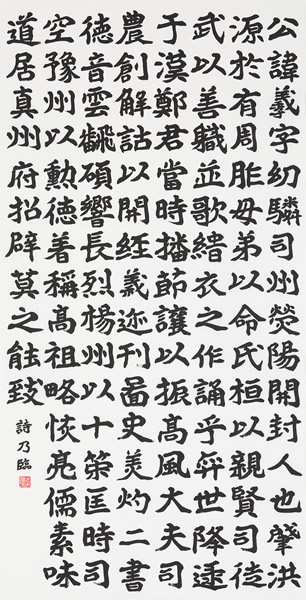 公諱羲字幼驎司州熒陽開封人也肇洪
源於有周胙母弟以命氏桓以親賢司徒
武以善職並歌緇衣之作誦乎弈世降逮
于漢鄭君當時播節讓以振高風大夫司
農創解詁以開經義迹刊啚史美灼二書
德音雲翻碩響長烈楊州以十策匡時司
空豫州以勳德著稱高祖略恢亮儒素味
道居真州府招辟莫之能致
詩乃臨